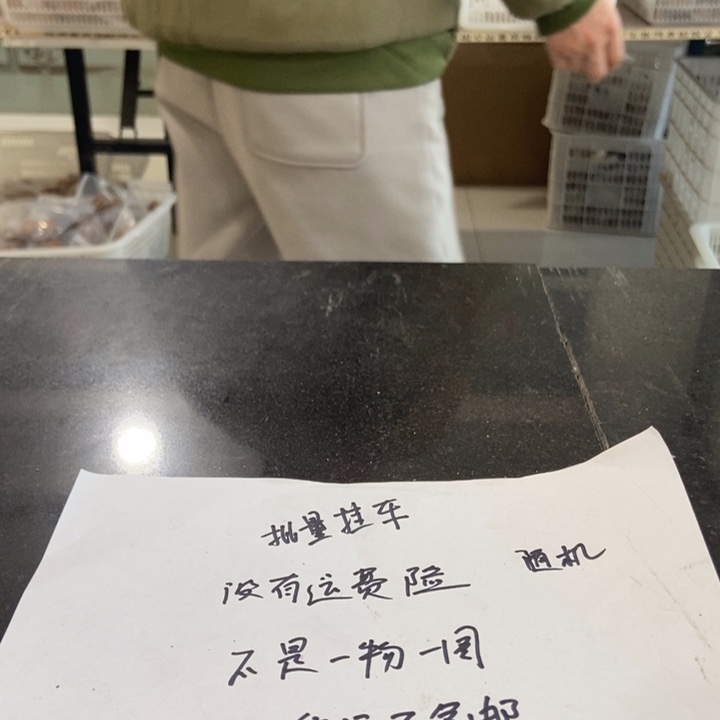 批量挂车
没有运费险 随机
不是一物一图
不包邮